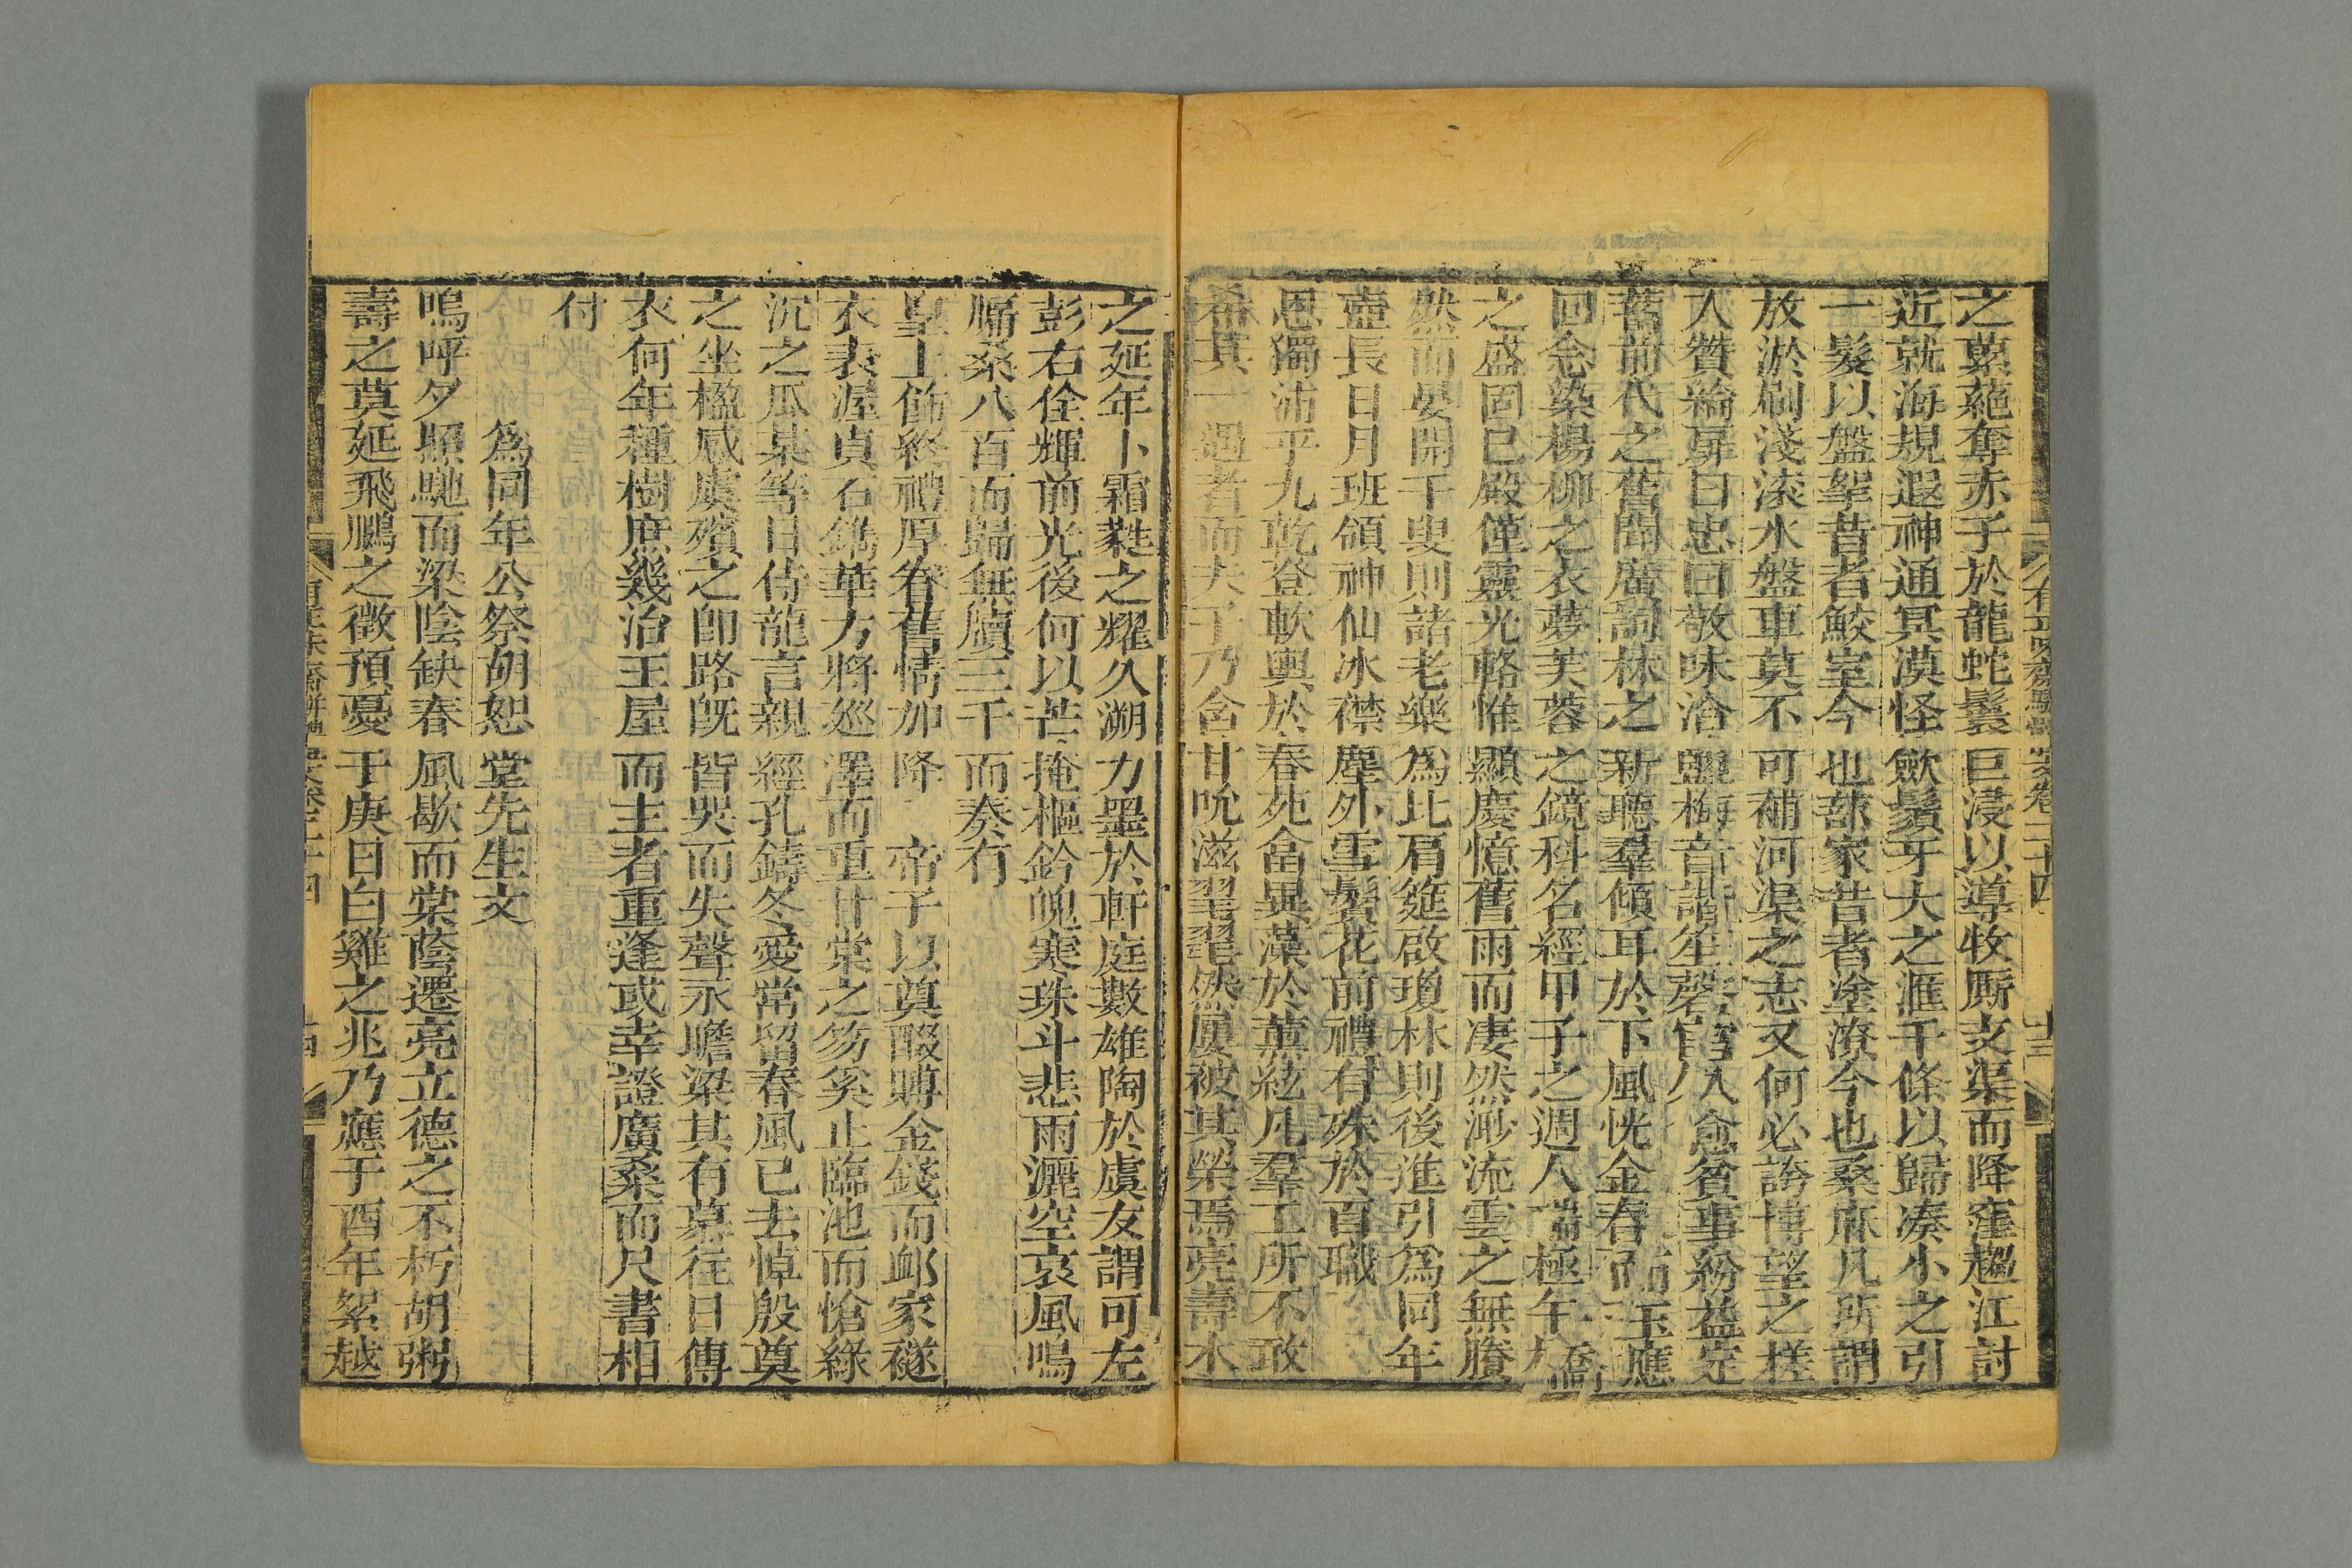 之菓蕝奪赤子於龍蛇鬟巨浸以導牧厮支渠而降窪趨江討
近就海規遐神通冥漠怪歛鬚牙大之滙千條以歸湊小之引
一髮以盤挐昔者鮫室今也蔀家昔者塗潦今也桑麻凡所謂
放淤刷淺滚水盤車莫不可補河渠之志又何必誇博望之槎
人贊綸扉曰忠囘敬味洽鹽梅音諧笙磬官入愈貧事紛益定
舊前代之舊聞廣詞林之新聽羣傾耳於下風恍金春玉應
回念染楊柳之衣夢芙蓉之鏡科名經甲子之週人瑞極午橋
之盛固已殿僅靈光輅惟顯慶憶舊雨而凄然渺流雲之無賸
然而宴開千叟則諸老樂為比肩筵啟瓊林則後進引為同年
壺長日月班領神仙冰襟塵外雪鬢花前禮有殊於百職
恩獨沛乎九乾登軟輿於春苑畣異藻於薰絃凡羣工所不敢
希其一遇者而夫子乃含甘吮滋翠翟然厦被其榮焉亮壽水
有正味齋駢體文卷二十四
之延年卜霜蕤之耀久溯力墨於軒庭數雄陶於虞友謂可左
彭右佺輝前光後何以芒掩樞鈐魄寒珠斗悲雨灑空哀風嗚
牖桑八百而歸無牘三千而奏有
皇上飾終禮厚眷舊情加降　帝子以奠酸賻金錢而卹家襚
衣表渥貞石鐫華方將廵澤而重甘棠之芴奚止臨池而愴綠
沉之瓜某等日侍龍言親經孔鑄冬愛常留春風已去悼殷奠
之坐楹感庚殯之卽路旣皆哭而失聲永瞻梁其有慕往日傳
衣何年種樹庶幾治玉屋而主者重逢或幸證廣桑而尺書相
付
為同年公祭胡恕堂先生文
嗚呼夕照馳而梁陰缺春風歇而棠蔭遷亮立德之不朽胡粥
壽之莫延飛鵩之徵預憂于庚日白雞之兆乃應于酉年絮越
有正味齋駢體文卷二十四　十四